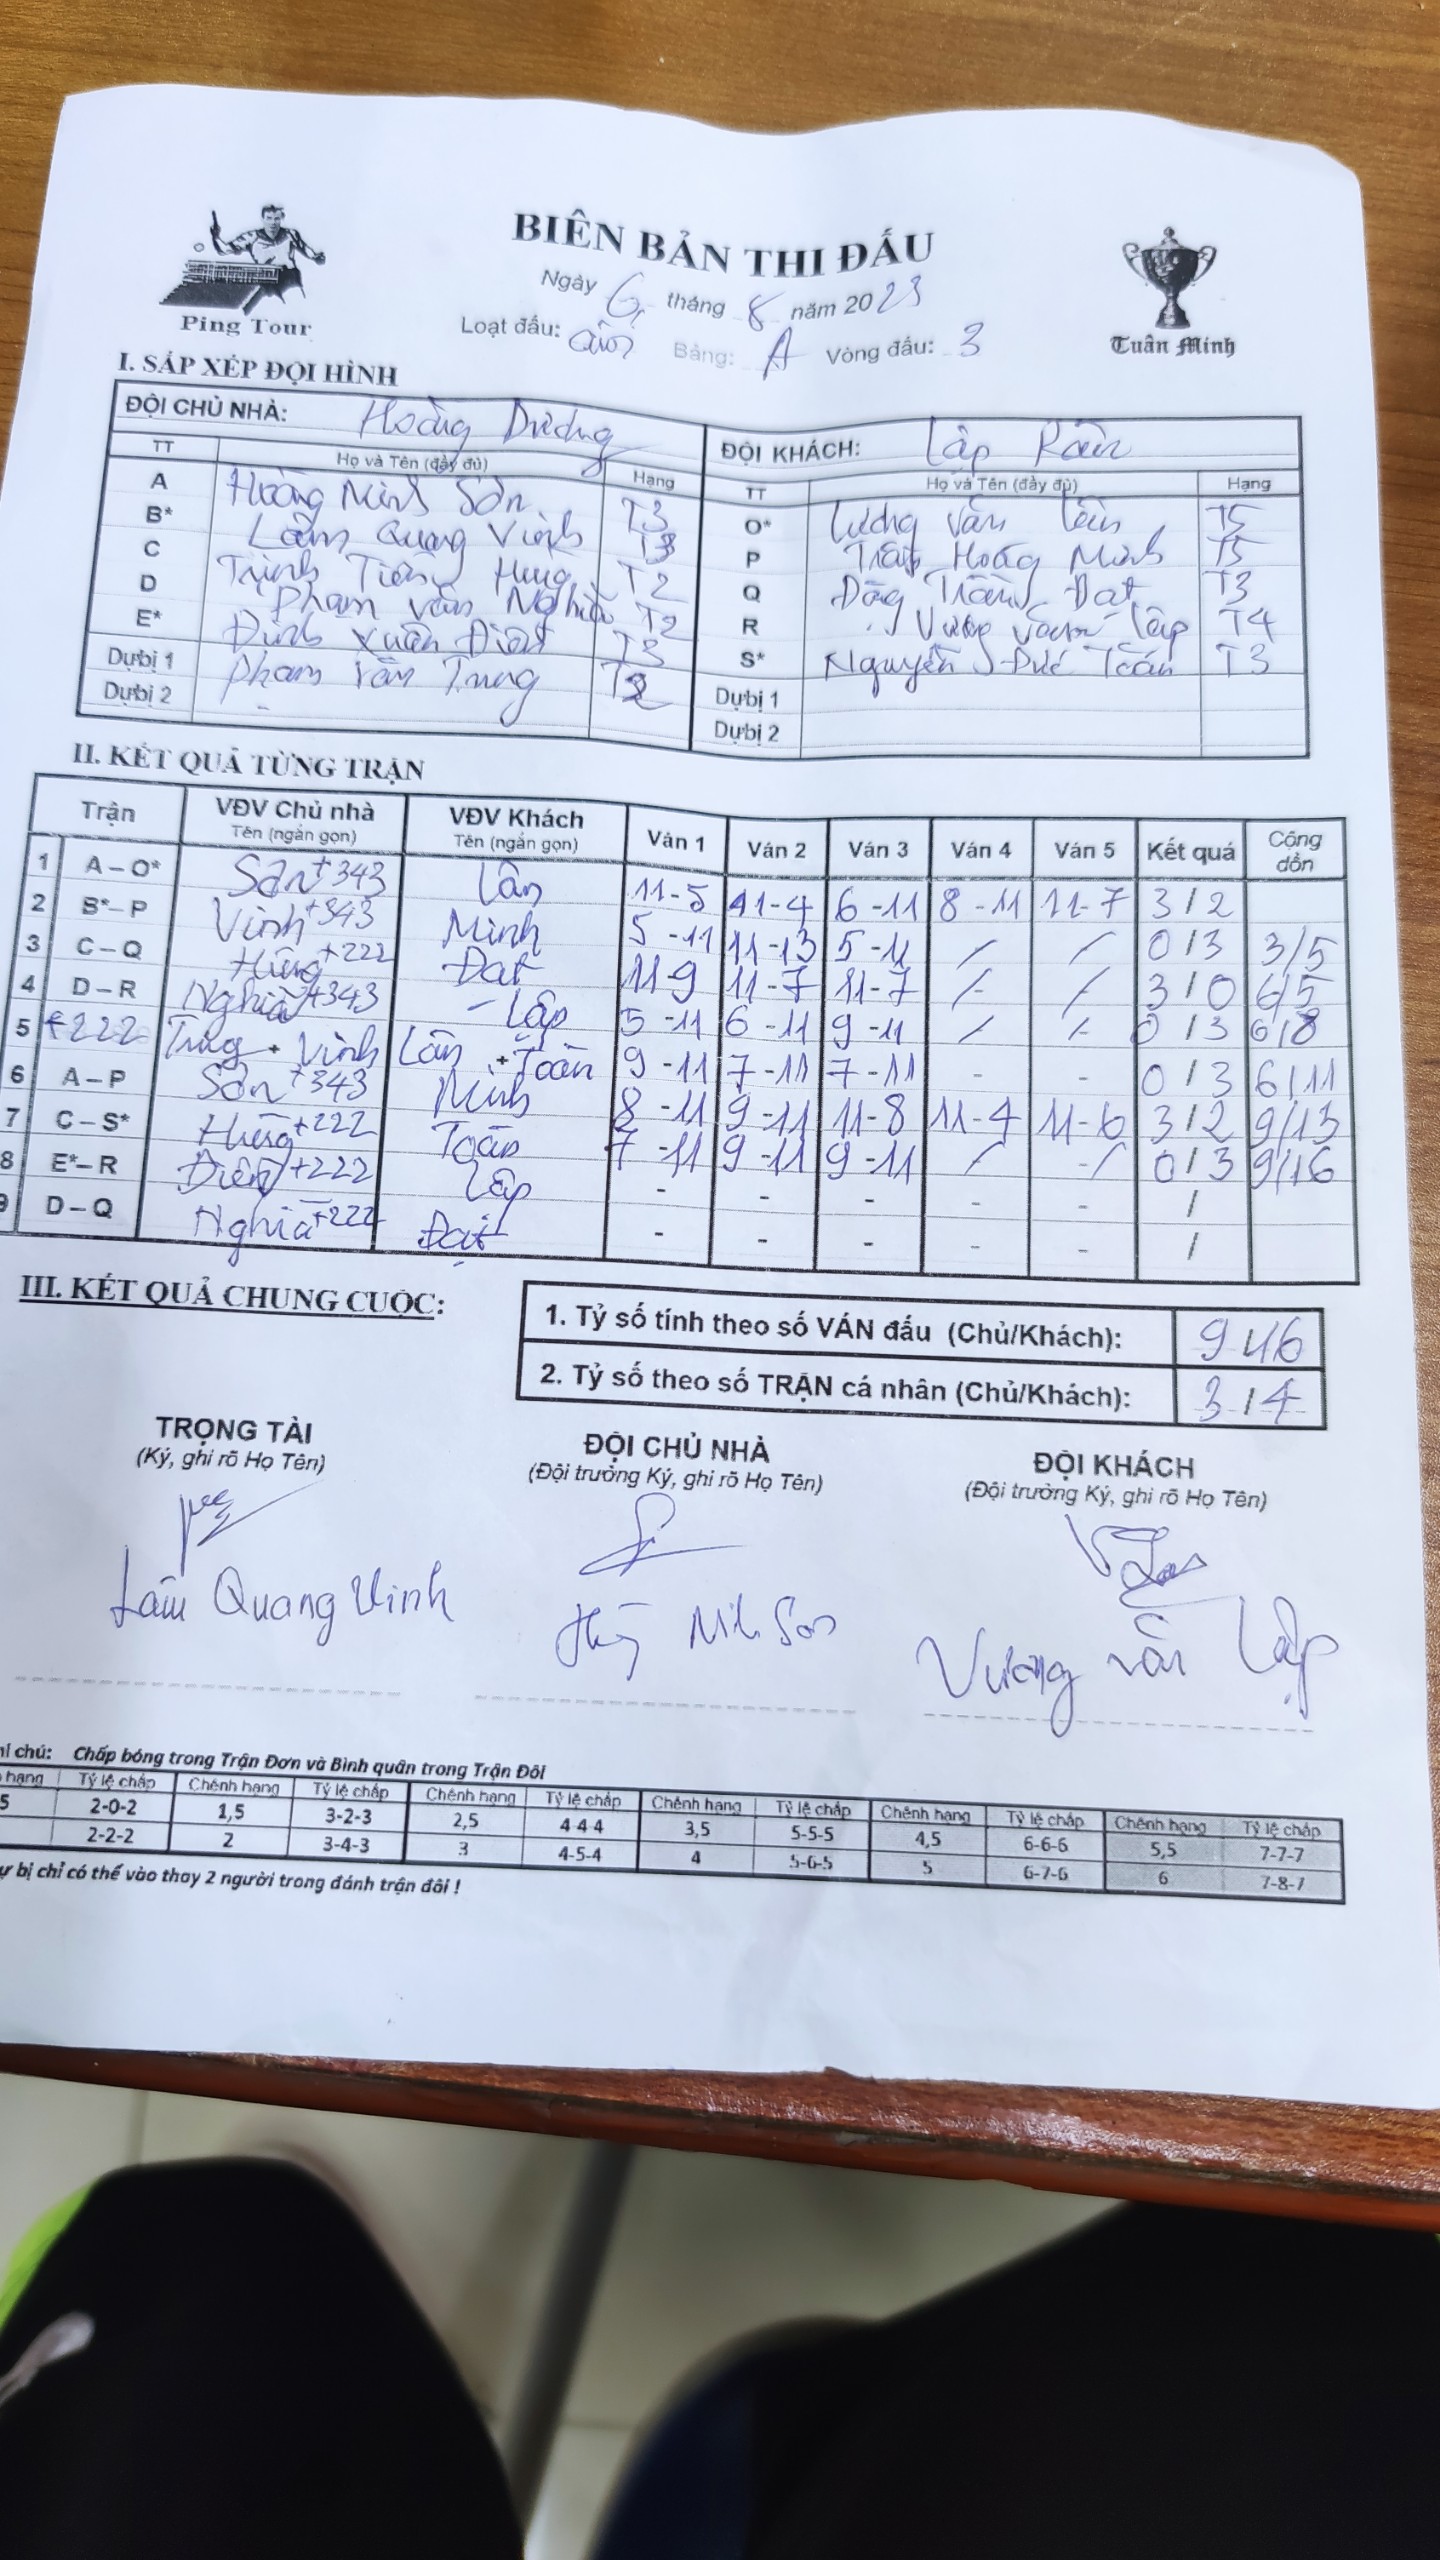 BIÊN BẢN THI ĐẤU
Ngày 6 tháng 8 năm 2023
Ping Tour
Loạt đấu: Bảng: A Vòng đấu: 3
Tuấn Minh
I. SẮP XẾP ĐỘI HÌNH
ĐỘI CHỦ NHÀ: Hoàng Dương ĐỘI KHÁCH: Lập
TT Họ và Tên (đầy đủ) Hạng TT Họ và Tên (đầy đủ) Hạng
A Hoàng Minh Sơn T3 O* Lương Văn T5
B* Lâm Quang Vinh T3 P Trần Hoàng Minh T5
C Trịnh Tiến Hưng T2 Q Đặng Trần Đạt T3
D Phạm Văn Nghĩa T2 R Vương Văn Lập T4
E* Đinh Xuân Điện T3 S* Nguyễn Đức Toàn T3
Dự bị 1 Phạm Văn Trung T2 Dự bị 1
Dự bị 2 Dự bị 2
II. KẾT QUẢ TỪNG TRẬN
Trận VĐV Chủ nhà Tên (ngắn gọn) VĐV Khách Tên (ngắn gọn) Ván 1 Ván 2 Ván 3 Ván 4 Ván 5 Kết quả Cộng dồn
1 A – O* Sơn +343 Lân 11-5 11-4 6-11 8-11 11-7 3/2
2 B* – P Vinh +343 Minh 5-11 11-13 5-11 / / 0/3 3/5
3 C – Q Hưng +222 Đạt 11-9 11-7 11-7 / / 3/0 6/5
4 D – R Nghĩa +343 Lập 5-11 6-11 9-11 / / 0/3 6/8
5 +222 Trung + Vinh Lân + Toàn 9-11 7-11 7-11 - - 0/3 6/11
6 A – P Sơn +343 Minh 8-11 9-11 11-8 11-4 11-6 3/2 9/13
7 C – S* Hưng +222 Toàn 7-11 9-11 9-11 / -/ 0/3 9/16
8 E* – R Điện +222 Lập - - - - - /
9 D – Q Nghĩa +222 Đạt - - - - - /
III. KẾT QUẢ CHUNG CUỘC:
1. Tỷ số tính theo số VÁN đấu (Chủ/Khách): 9/16
2. Tỷ số theo số TRẬN cá nhân (Chủ/Khách): 3/4
TRỌNG TÀI ĐỘI CHỦ NHÀ ĐỘI KHÁCH
(Ký, ghi rõ Họ Tên) (Đội trưởng Ký, ghi rõ Họ Tên) (Đội trưởng Ký, ghi rõ Họ Tên)
Lâm Quang Vinh Minh Sơn Vương Văn Lập
hi chú: Chấp bóng trong Trận Đơn và Bình quân trong Trận Đôi
hạng Tỷ lệ chấp Chênh hạng Tỷ lệ chấp Chênh hạng Tỷ lệ chấp Chênh hạng Tỷ lệ chấp Chênh hạng Tỷ lệ chấp Chênh hạng Tỷ lệ chấp
5 2-0-2 1,5 3-2-3 2,5 4-4-4 3,5 5-5-5 4,5 6-6-6 5,5 7-7-7
2-2-2 2 3-4-3 3 4-5-4 4 5-6-5 5 6-7-6 6 7-8-7
ự bị chỉ có thể vào thay 2 người trong đánh trận đôi !